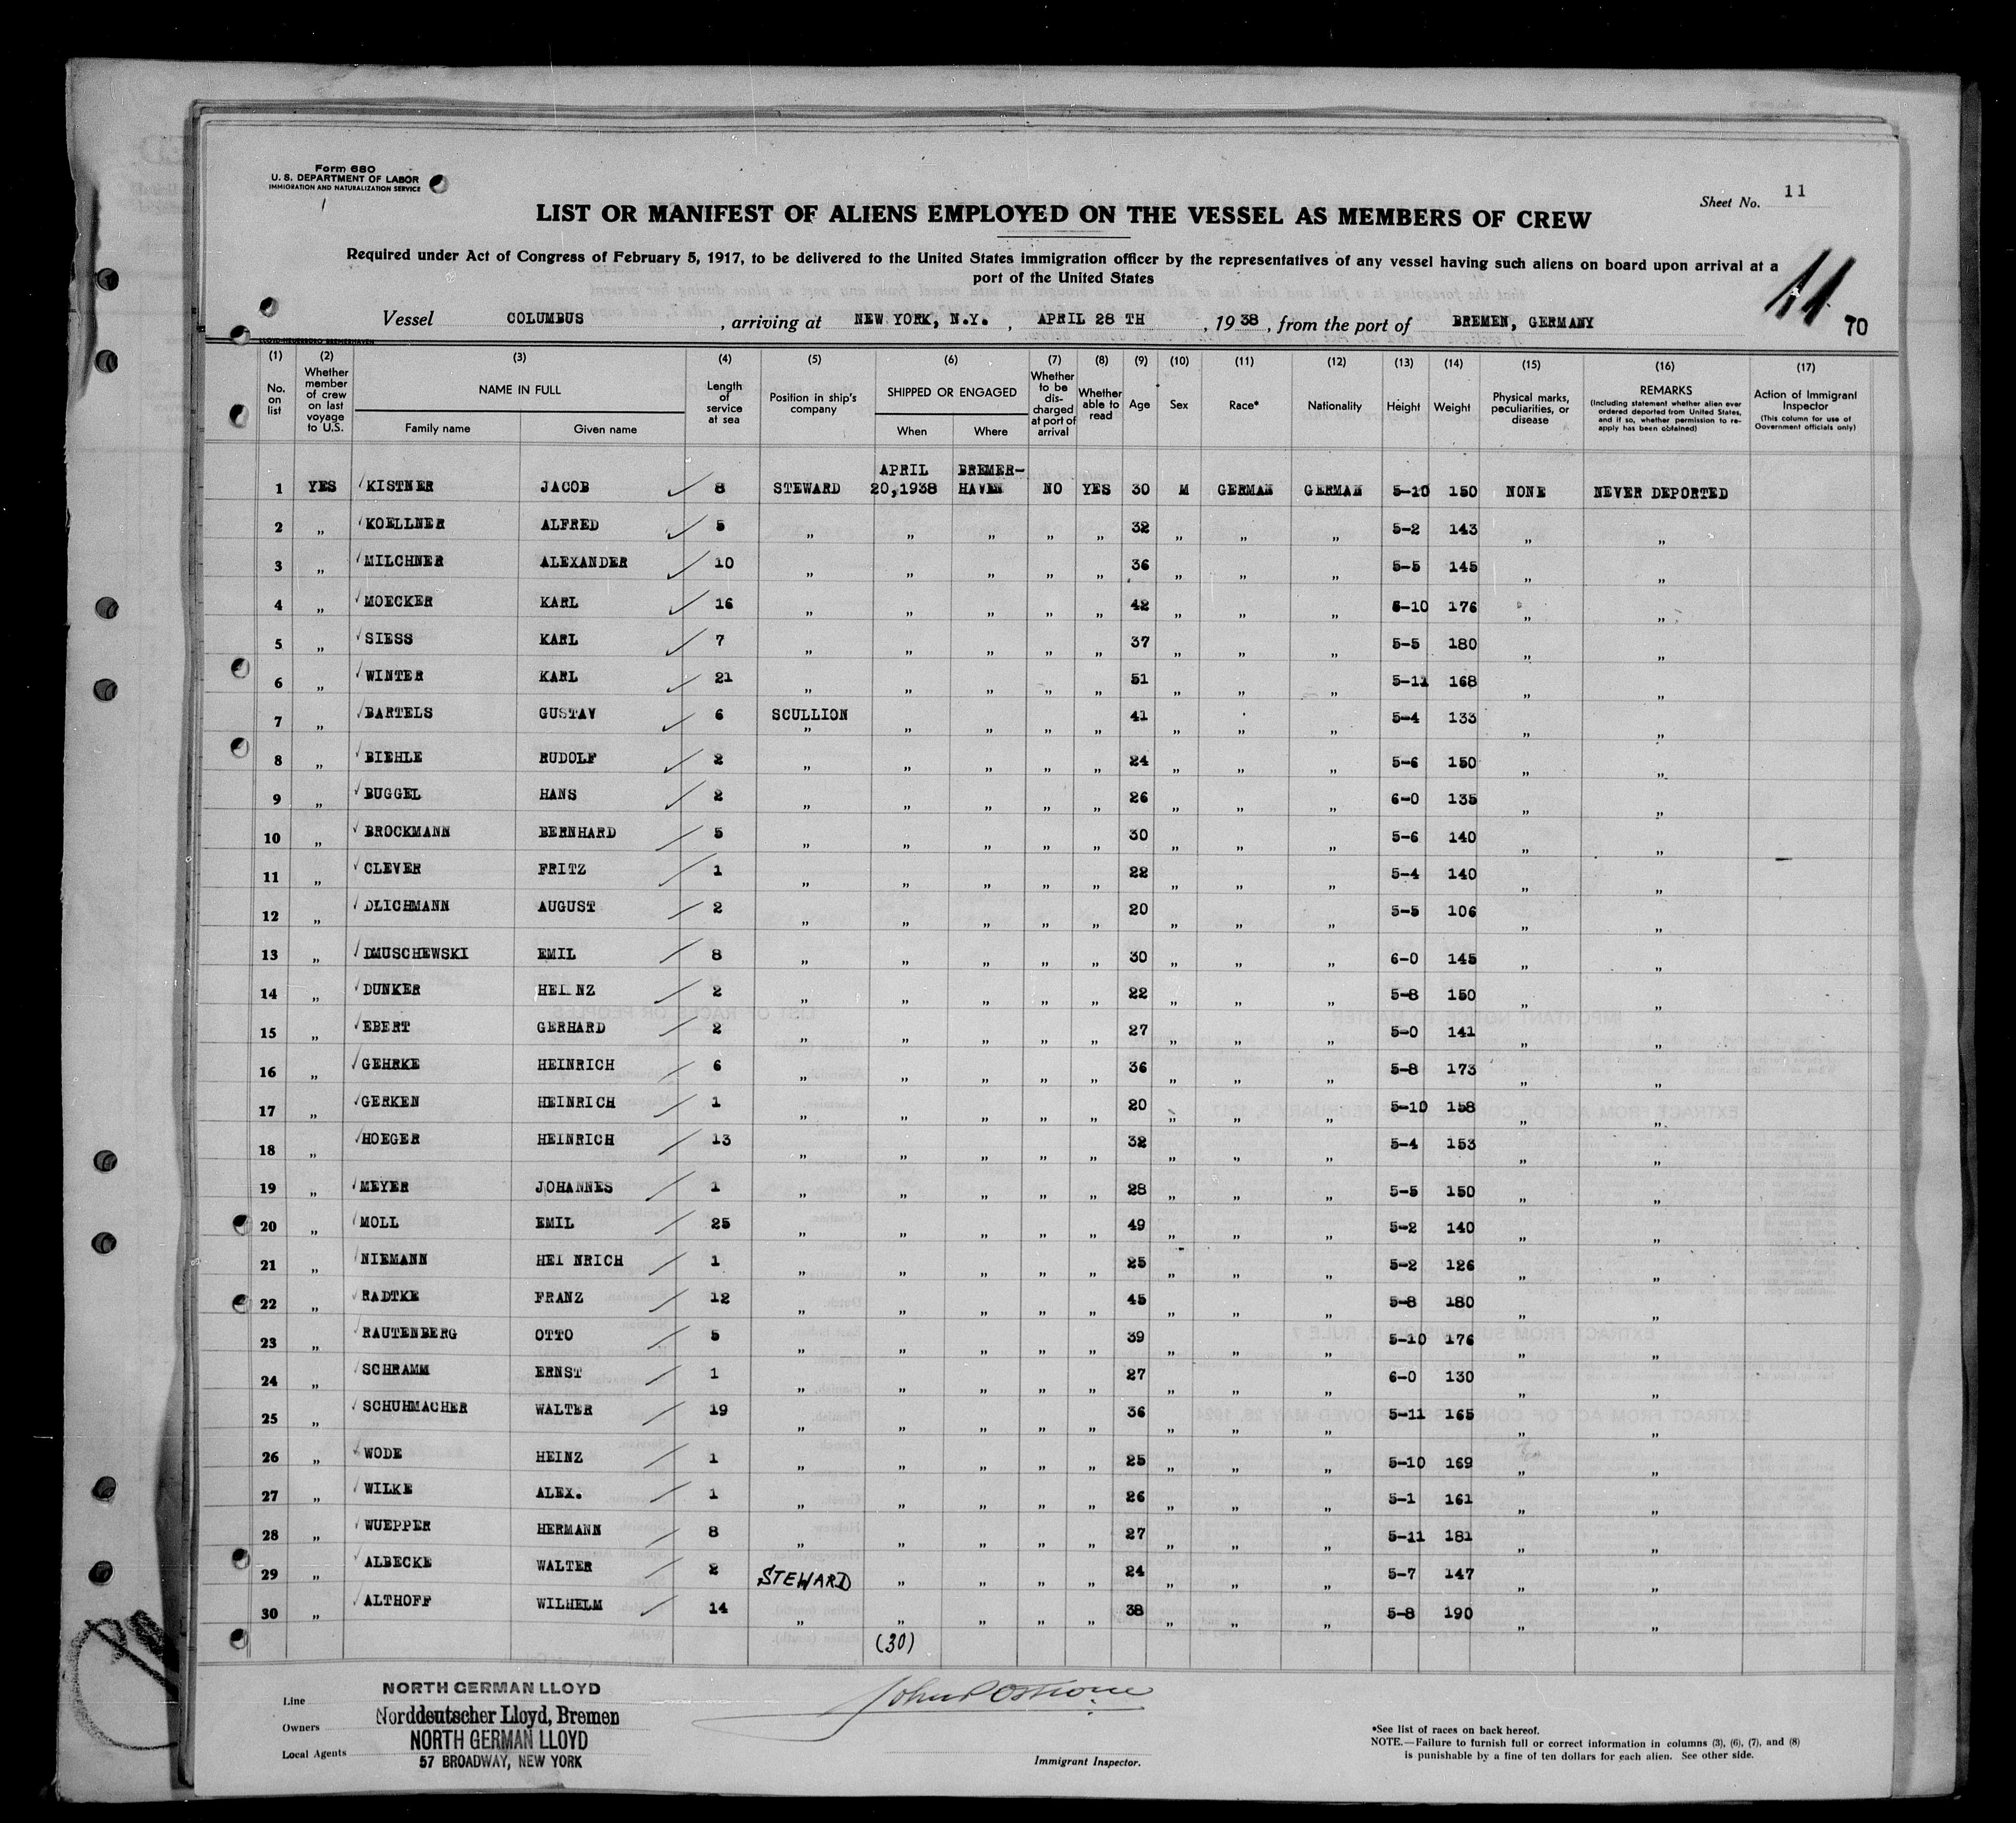 Form 680
U. S. DEPARTMENT OF LABOR
IMMIGRATION AND NATURALIZATION SERVICE
Sheet No. 11
LIST OR MANIFEST OF ALIENS EMPLOYED ON THE VESSEL AS MEMBERS OF CREW
Required under Act of Congress of February 5, 1917, to be delivered to the United States immigration officer by the representatives of any vessel having such aliens on board upon arrival at a
port of the United States
11
Vessel COLUMBUS, arriving at NEW YORK, N.Y., APRIL 28 TH, 1938, from the port of BREMEN, GERMANY 70
(1) No. on list (2) Whether member of crew on last voyage to U.S. (3) NAME IN FULL Family name Given name (4) Length of service at sea (5) Position in ship's company (6) SHIPPED OR ENGAGED When Where (7) Whether to be discharged at port of arrival (8) Whether able to read (9) Age (10) Sex (11) Race* (12) Nationality (13) Height (14) Weight (15) Physical marks, peculiarities, or disease (16) REMARKS (Including statement whether alien ever ordered deported from United States, and if so, whether permission to reapply has been obtained) (17) Action of Immigrant Inspector (This column for use of Government officials only)
1 YES KISTNER JACOB 8 STEWARD APRIL 20,1938 BREMER-HAVEN NO YES 30 M GERMAN GERMAN 5-10 150 NONE NEVER DEPORTED
2 „ KOELLNER ALFRED 5 „ „ „ „ „ 32 „ „ „ 5-2 143 „ „
3 „ MILCHNER ALEXANDER 10 „ „ „ „ „ 36 „ „ „ 5-5 145 „ „
4 „ MOECKER KARL 16 „ „ „ „ „ 42 „ „ „ 5-10 176 „ „
5 „ SIESS KARL 7 „ „ „ „ „ 37 „ „ „ 5-5 180 „ „
6 „ WINTER KARL 21 „ „ „ „ „ 51 „ „ „ 5-11 168 „ „
7 „ BARTELS GUSTAV 6 SCULLION „ „ „ „ „ 41 „ „ „ 5-4 133 „ „
8 „ BIEHLE RUDOLF 2 „ „ „ „ „ 24 „ „ „ 5-6 150 „ „
9 „ BUGGEL HANS 2 „ „ „ „ „ 26 „ „ „ 6-0 135 „ „
10 „ BROCKMANN BERNHARD 5 „ „ „ „ „ 30 „ „ „ 5-6 140 „ „
11 „ CLEVER FRITZ 1 „ „ „ „ „ 22 „ „ „ 5-4 140 „ „
12 „ DLICHMANN AUGUST 2 „ „ „ „ „ 20 „ „ „ 5-5 106 „ „
13 „ DMUSCHEWSKI EMIL 8 „ „ „ „ „ 30 „ „ „ 6-0 145 „ „
14 „ DUNKER HEINZ 2 „ „ „ „ „ 22 „ „ „ 5-8 150 „ „
15 „ EBERT GERHARD 2 „ „ „ „ „ 27 „ „ „ 5-0 141 „ „
16 „ GEHRKE HEINRICH 6 „ „ „ „ „ 36 „ „ „ 5-8 173 „ „
17 „ GERKEN HEINRICH 1 „ „ „ „ „ 20 „ „ „ 5-10 158 „ „
18 „ HOEGER HEINRICH 13 „ „ „ „ „ 32 „ „ „ 5-4 153 „ „
19 „ MEYER JOHANNES 1 „ „ „ „ „ 28 „ „ „ 5-5 150 „ „
20 „ MOLL EMIL 25 „ „ „ „ „ 49 „ „ „ 5-2 140 „ „
21 „ NIEMANN HEI NRICH 1 „ „ „ „ „ 25 „ „ „ 5-2 126 „ „
22 „ RADTKE FRANZ 12 „ „ „ „ „ 45 „ „ „ 5-8 180 „ „
23 „ RAUTENBERG OTTO 5 „ „ „ „ „ 39 „ „ „ 5-10 176 „ „
24 „ SCHRAMM ERNST 1 „ „ „ „ „ 27 „ „ „ 6-0 130 „ „
25 „ SCHUHMACHER WALTER 19 „ „ „ „ „ 36 „ „ „ 5-11 165 „ „
26 „ WODE HEINZ 1 „ „ „ „ „ 25 „ „ „ 5-10 169 „ „
27 „ WILKE ALEX. 1 „ „ „ „ „ 26 „ „ „ 5-1 161 „ „
28 „ WUEPPER HERMANN 8 „ „ „ „ „ 27 „ „ „ 5-11 181 „ „
29 „ ALBECKE WALTER 2 STEWARD „ „ „ „ 24 „ „ „ 5-7 147 „ „
30 „ ALTHOFF WILHELM 14 „ „ „ „ „ 38 „ „ „ 5-8 190 „ „
(30)
Line NORTH GERMAN LLOYD
Owners Norddeutscher Lloyd, Bremen
Local Agents NORTH GERMAN LLOYD
57 BROADWAY, NEW YORK
Immigrant Inspector.
*See list of races on back hereof.
NOTE.—Failure to furnish full or correct information in columns (3), (6), (7), and (8)
is punishable by a fine of ten dollars for each alien. See other side.